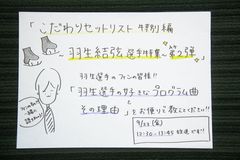 「こだわりセットリスト 特別編
羽生結弦選手特集〜第2弾
羽生選手のファンの皆様!!
「羽生選手の好きなプログラム曲
その理由」をお便りで教えてください!!
9/23(金)
12:30-13:55 放送です!!